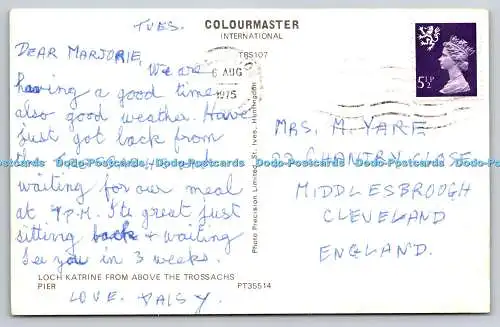 TUES.
COLOURMASTER
INTERNATIONAL
T85107
DEAR MARJORIE,
We are
having a good time
also good weather. Have
just got back from
waiting for our meal
at 7 P.M. Its great just
sitting back + waiting
See you in 3 weeks.
LOCH KATRINE FROM ABOVE THE TROSSACHS
PIER
PT35514
LOVE. DAISY.
6 AUG
1975
5½P
Photo Precision Limited, St. Ives, Huntingdon
MRS. M. YARE
CHANTRY CLOSE
MIDDLESBROUGH
CLEVELAND
ENGLAND.
Dodo-Postcards Dodo-Postcards Dodo-Postcards Dodo-Postcards Dodo-Postcards